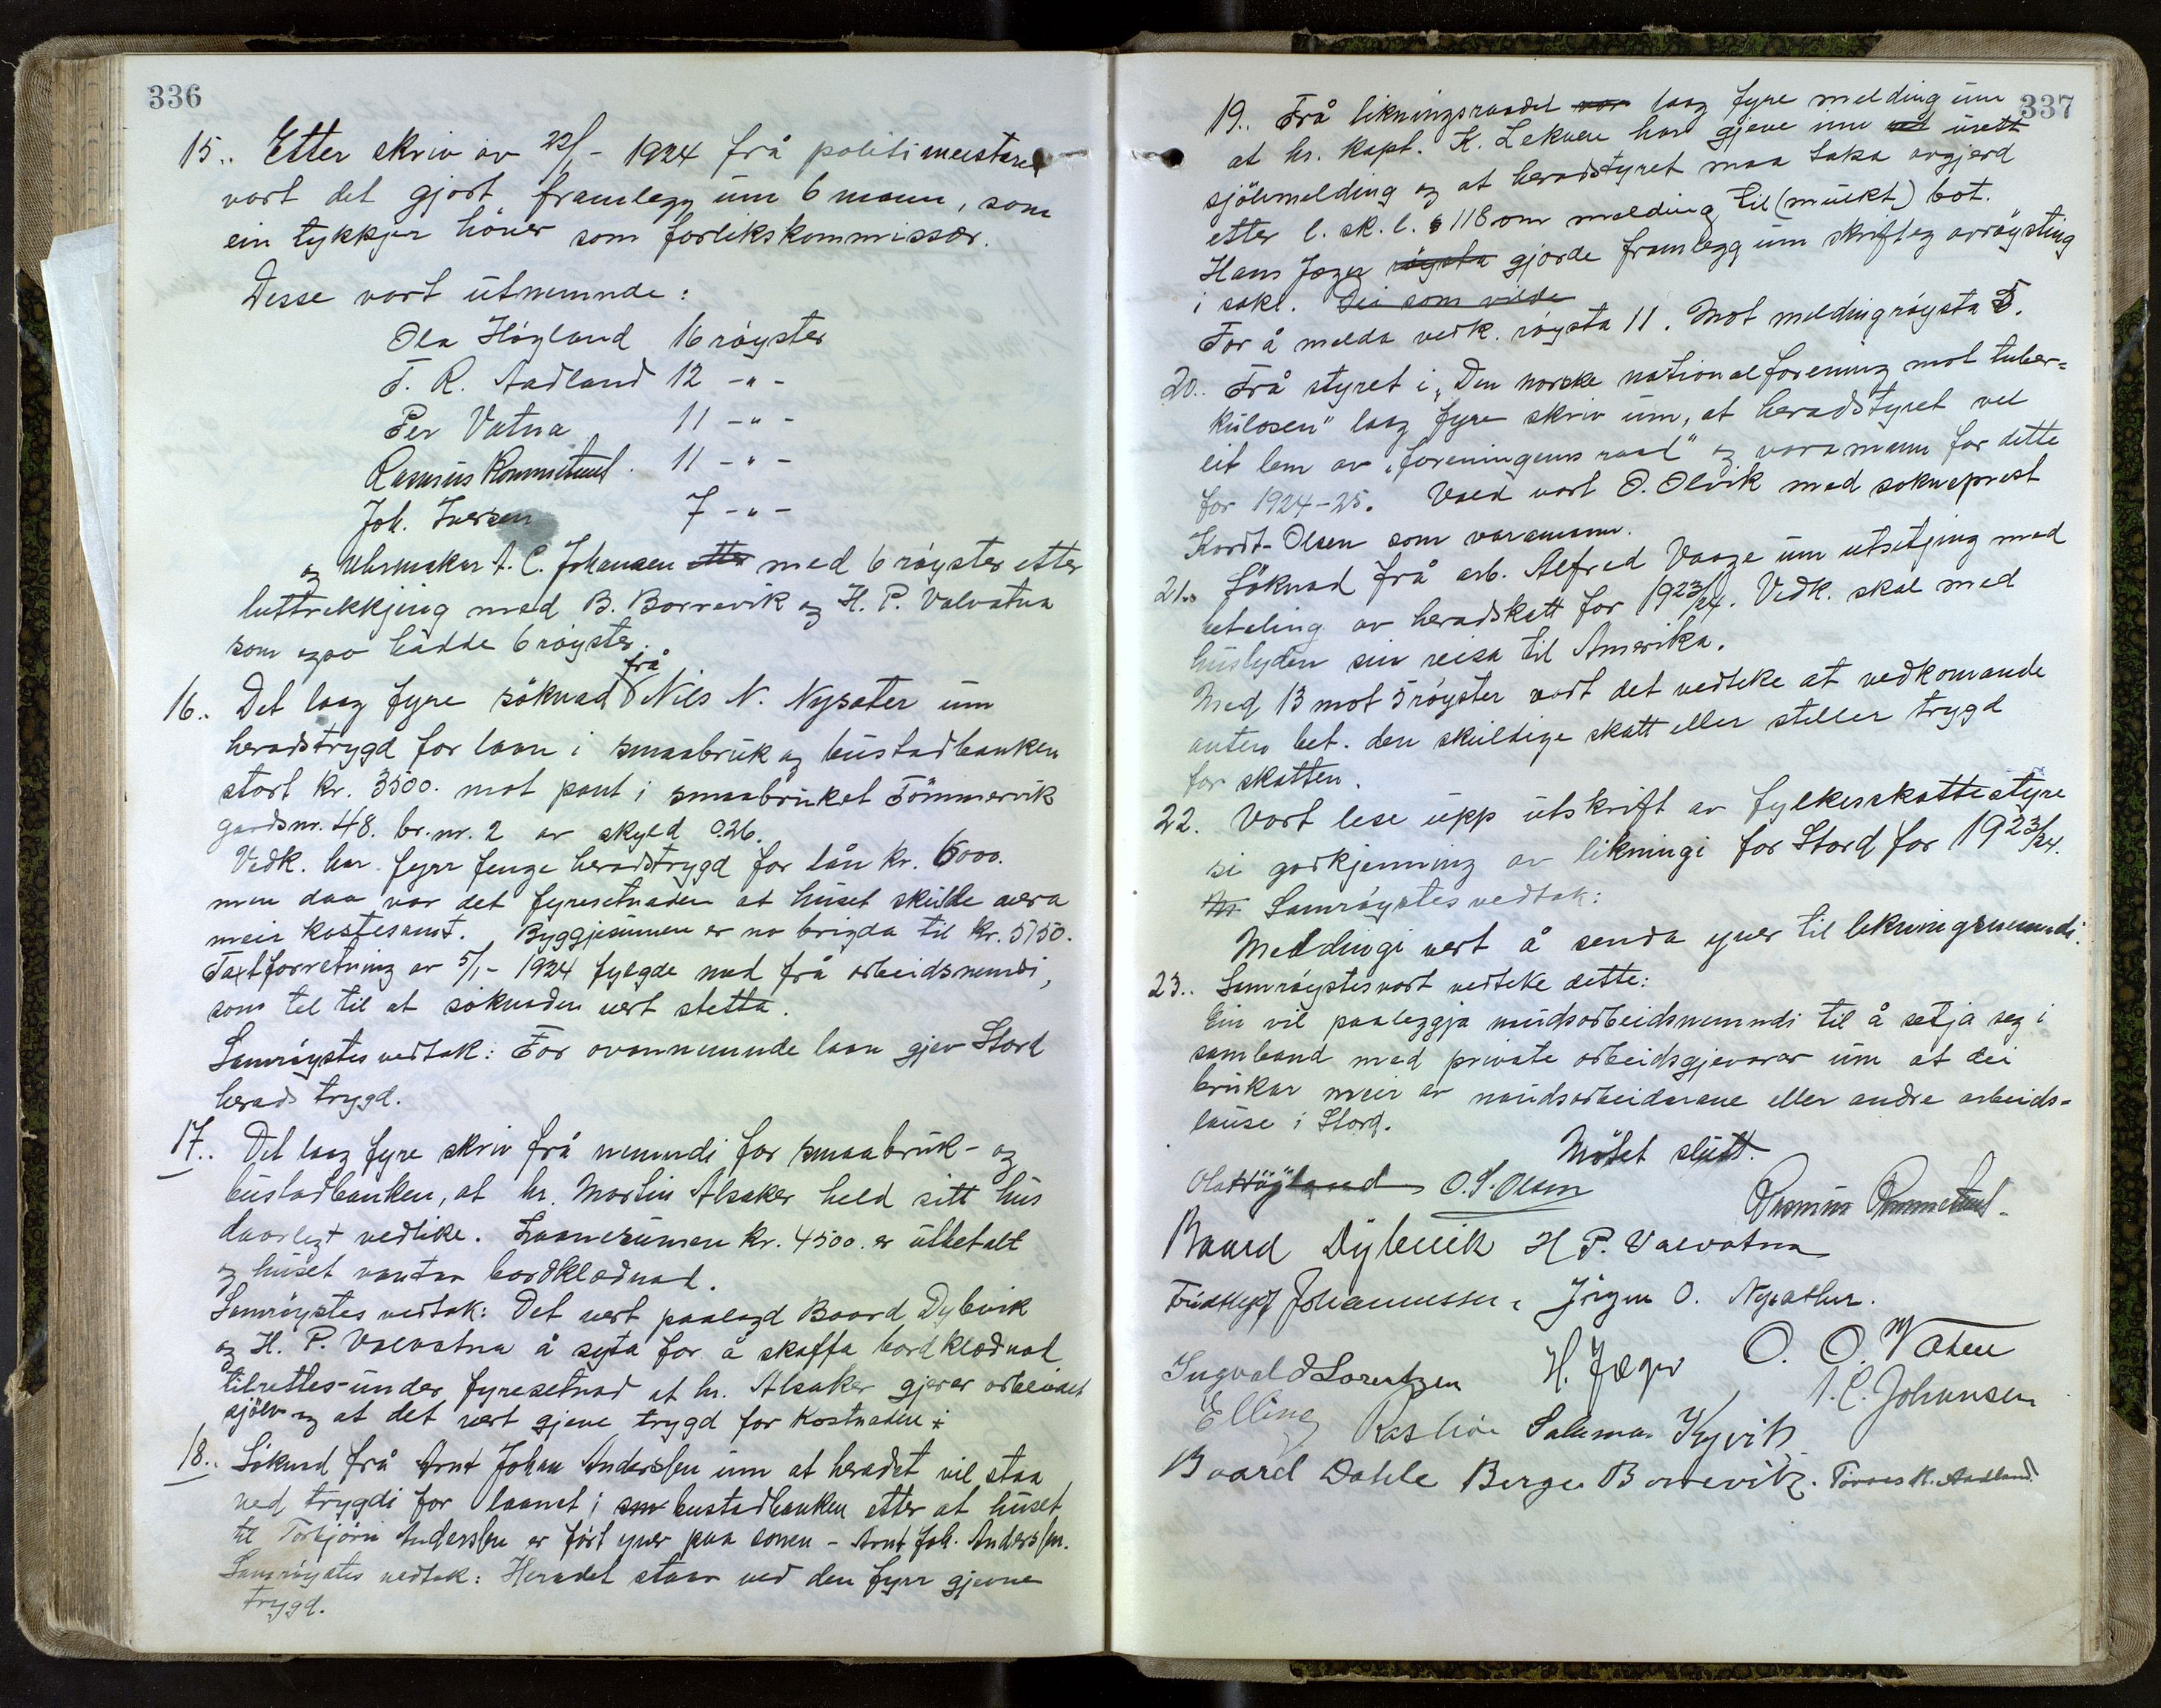 336
15.. Etter skriv av 22/1 - 1924 frå politimeistaren
vart det gjort framlegg um 6 mann, som
ein tykkjer höver som forlikskommissær.
Desse vart utnemnde:
Ola Högland 16 röyster
T. R. Aadland 12 -"-
Per Vatna 11 -"-
Rasmus Rommetveit. 11 -"-
Joh. Iversen 7 -"-
og Uhrmakar A. C. Johansen etter med 6 röyster etter
luttrekkjing med B. Borrevik og H. P. Valvatna
som ogso hadde 6 röyster.
16.. Det laag fyre söknad frå Nils N. Nysæter um
heradstrygd for laan i smaabruk og bustadbanken
stort kr. 3500. mot pant i smaabruket Tömmervik
gardsnr. 48. br. nr. 2 av skyld 026.
Vedk. har fyrr fenge heradstrygd for lån kr. 6000.
men daa var det fyresetnaden at huset skulde vera
meir kostesamt. Byggjesumen er no brigda til kr. 5150.
Taxtforretning av 5/1 - 1924 fylgde med frå arbeidsnemndi,
som tel til at söknaden vert stetta.
Samröystes vedtak: For ovannemnde laan gjev Stord
herad trygd.
17.. Det laag fyre skriv frå nemndi for smaabruk- og
bustadbanken, at hr. Martin Alsaker held sitt hus
daarlegt vedlike. Laanesumen kr. 4500. er utbetalt
og huset vantar bordklædnad.
Samröystes vedtak: Det vert paalagd Baard Dybevik
og H. P. Valvatna å syta for å skaffa bordklædnad
tilrettes under fyresetnad at hr. Alsaker gjerer arbeidet
sjölv og at det vert gjeve trygd for kostnaden.
18.. Söknad frå Arnt Johan Anderssen um at heradet vil staa
ved trygdi for laanet i sm bustadbanken etter at huset
til Torbjörn Anderssen er fört yver paa sonen - Arnt Joh. Anderssen.
Samröystes vedtak: Heradet staar ved den fyrr gjevne
trygd.
337
19.. Frå likningsraadet var laag fyre melding um
at hr. kapt. K. Lekven har gjeve inn ved urett
sjölvmelding og at heradstyret maa taka avgjerd
etter l. sk. l. § 118 om melding til (mulkt) bot.
Hans Jæger röysta gjorde framlegg um skriftleg avröysting
i saki. Dei som vilde
For å melda vedk. röysta 11. Mot melding röysta 5.
20.. Frå styret i „Den norske nationalforening mot tuber=
kulosen" laag fyre skriv um, at heradstyret vel
eit lem av „foreningens raad" og varamann for dette
for 1924-25. Vald vart O. Olvik med sokneprest
Kordt-Olsen som varamann.
21.. Söknad frå arb. Alfred Vaage um utsetjing med
betaling av heradskatt for 1923/24. Vedk. skal med
huslyden sin reisa til Amerika.
Med 13 mot 5 röyster vart det vedteke at vedkomande
anten bet. den skuldige skatt eller steller trygd
for skatten.
22. Vart lese upp utskrift av fylkesskattestyre
si godkjenning av likningi for Stord for 1923/24.
Samröystes vedtak:
Meldingi vert å senda yver til likningsnemndi.
23.. Samröystes vart vedteke dette:
Ein vil paaleggja naudsarbeidsnemndi til å setja seg i
samband med private arbeidsgjevarar um at dei
brukar meir av naudsarbeidarane eller andre arbeids=
lause i Stord.
Mötet slutt.
Ola Högland O. S. Olsen
Rasmus Rommetveit
Baard Dybevik H P. Valvatna
Fridthjof Johannessen, Jörgen O. Nysæther.
Ingvald Lorentzen H. Jæger O. O. Vatne
A. C. Johansen
Elling Salamon Kyvik
Baard Dahle Berge Borrevik. Törres R. Aadland.